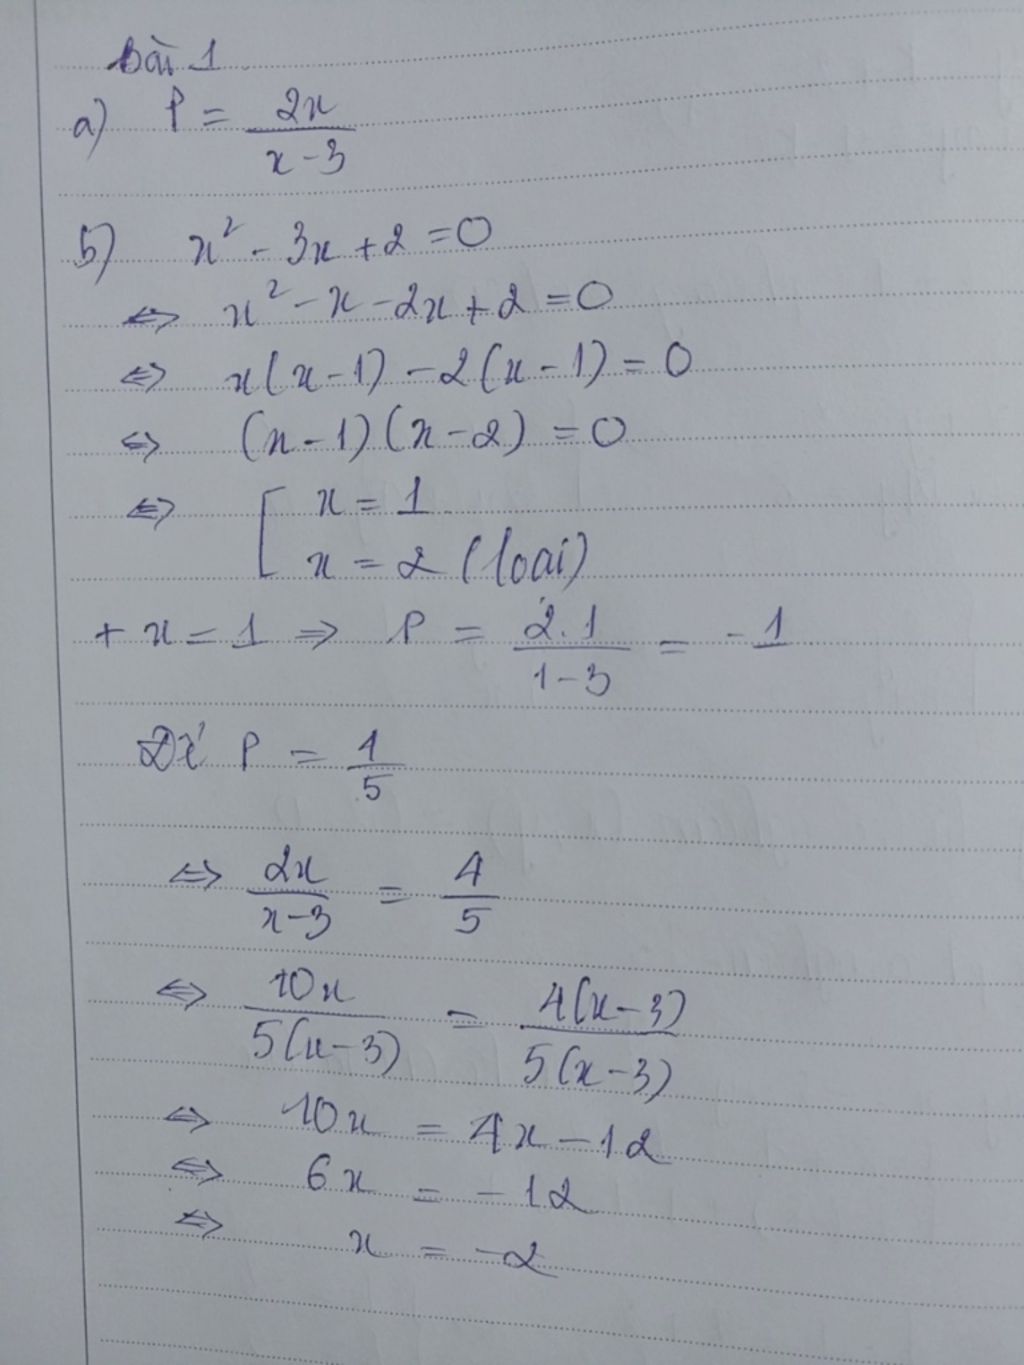 Bài 1
a) P = 2x / x-3
b) x² - 3x + 2 = 0
⇔ x² - x - 2x + 2 = 0
⇔ x(x-1) - 2(x-1) = 0
⇔ (x-1)(x-2) = 0
⇔ [ x = 1
x = 2 (loại)
+ x = 1 ⇒ P = 2.1 / 1-3 = -1
Để P = 4/5
⇔ 2x / x-3 = 4/5
⇔ 10x / 5(x-3) = 4(x-3) / 5(x-3)
⇔ 10x = 4x - 12
⇔ 6x = -12
⇔ x = -2